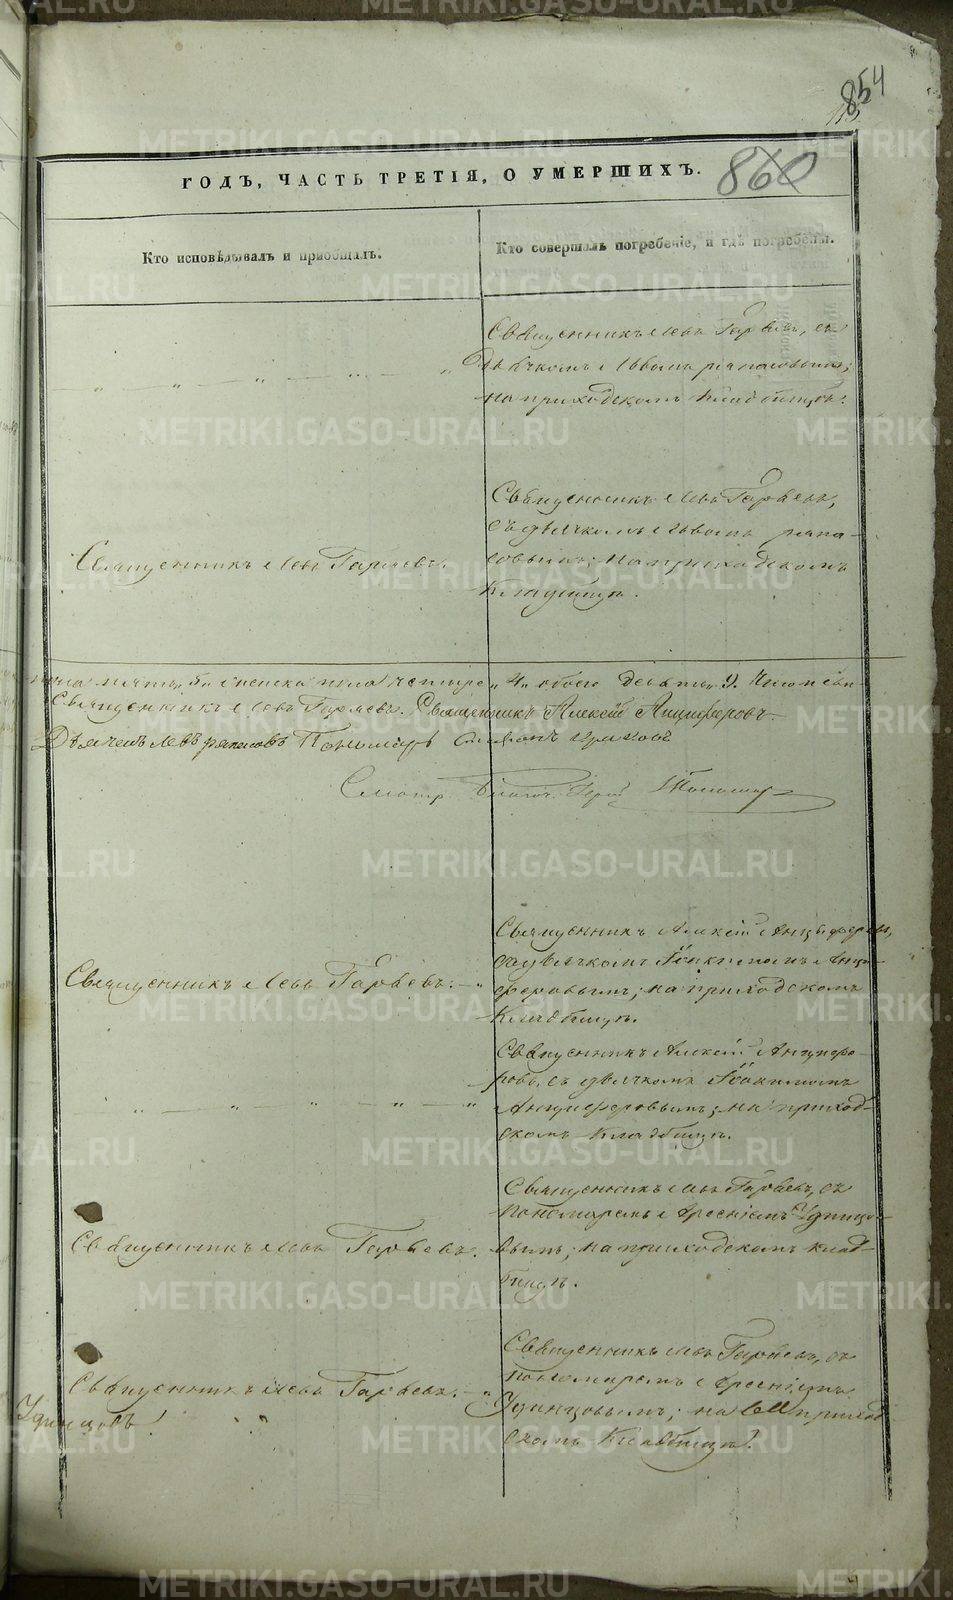 854
860
ГОДЪ, ЧАСТЬ ТРЕТІЯ, О УМЕРШИХЪ.
Кто исповѣдывалъ и приобщалъ.
Кто совершалъ погребеніе, и гдѣ погребены.
Священникъ Левъ Гаряевъ, съ
Дьячкомъ Львомъ
на приходскомъ кладбищѣ.
Священникъ Левъ Гаряевъ.
Священникъ Левъ Гаряевъ,
съ дьячкомъ Львомъ
на приходскомъ
кладбищѣ.
пола пять „5„ женска пола четыре „4„ обоего девять „9.
Священникъ Левъ Гаряевъ. Священникъ Алексѣй Анциферовъ.
Дьячекъ Левъ Пономарь
Смотр. Благоч.
Священникъ Левъ Гаряевъ.
Священникъ Алексѣй Анциферовъ,
съ дьячкомъ Іоакимомъ Анци-
феровымъ; на приходскомъ
кладбищѣ.
Священникъ Алексѣй Анцифе-
ровъ, съ дьячкомъ Іоакимомъ
Анциферовымъ; на приход-
скомъ кладбищѣ.
Священникъ Левъ Гаряевъ.
Священникъ Левъ Гаряевъ, съ
пономаремъ Арсеніемъ Удинцо-
вымъ; на приходскомъ клад-
бищѣ.
Священникъ Левъ Гаряевъ.
Удинцовъ
Священникъ Левъ Гаряевъ, съ
пономаремъ Арсеніемъ
Удинцовымъ; на приход
скомъ кладбищѣ.
METRIKI.GASO-URAL.RU